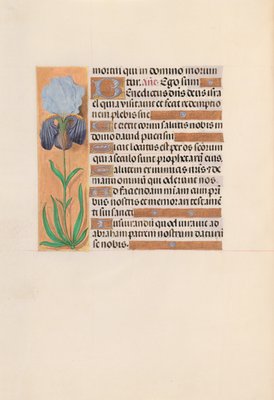 mortui qui in domino moriun
tur. añe. Ego sum
Benedictus dñs deus isrl
quia visitauit et fecit redemptio
nem plebis sue
Et erexit cornu salutis nobis in
domo dauid pueri sui
Sicut locutus est per os sctorum
qui a seculo sunt prophetarum eius
Salutem ex inimicis nris ⁊ de
manu omnium qui oderunt nos
Ad faciendam miam cum prī
bus nostris et memorari testamē
ti sui sancti
Iusiurandum quod iurauit ad
abraham patrem nostrum daturū
se nobis.